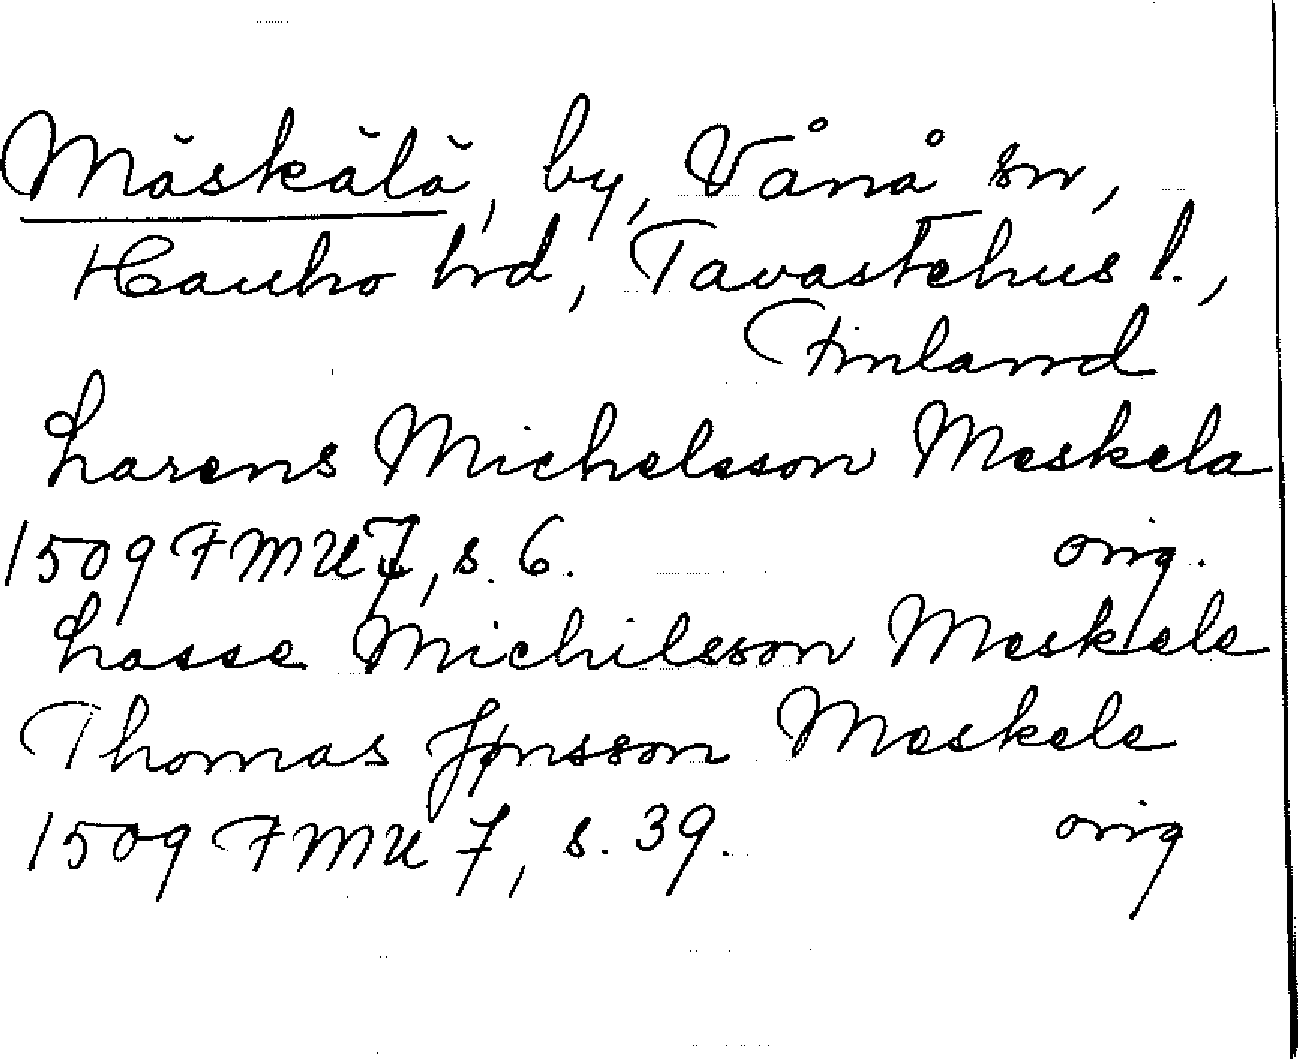 Mäskälä, by, Vånå sn,
Hauho hrd, Tavastehus l.,
Finland
Larens Michelsson Meskela
1509 FMU 7, s. 6. orig.
Lasse Michilsson Meskele
Thomas Jönsson Meskele
1509 FMU 7, s. 39. orig